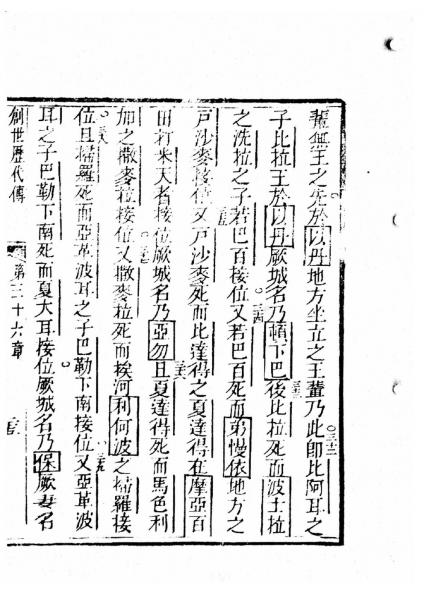 輩無王之先於以丹地方坐立之王輩乃此卽比阿耳之
子比拉王於以丹厥城名乃頓下巴後比拉死而波土拉
之洗拉之子若巴百接位又若巴百死而弟慢依地方之
戶沙麥接位又戶沙麥死而比達得之夏達得在摩亞百
田打米大者接位厥城名乃亞勿且夏達得死而馬色利
加之撒麥拉接位又撒麥拉死而挨河利何波之掃羅接
位且掃羅死而亞革波耳之子巴勒下南接位又亞革波
耳之子巴勒下南死而夏大耳接位厥城名乃保厥妻名
創世歷代傳 第三十六章